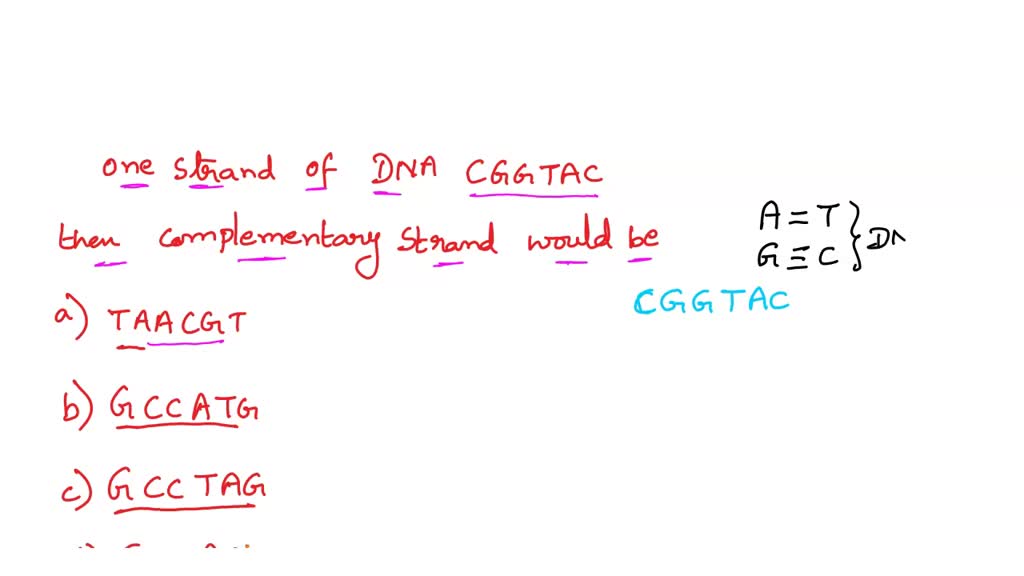 one strand of DNA CGGTAC
then complementary strand would be
A = T
G ≡ C } DN
CGGTAC
a) TAACGT
b) GCCATG
c) GCCTAG